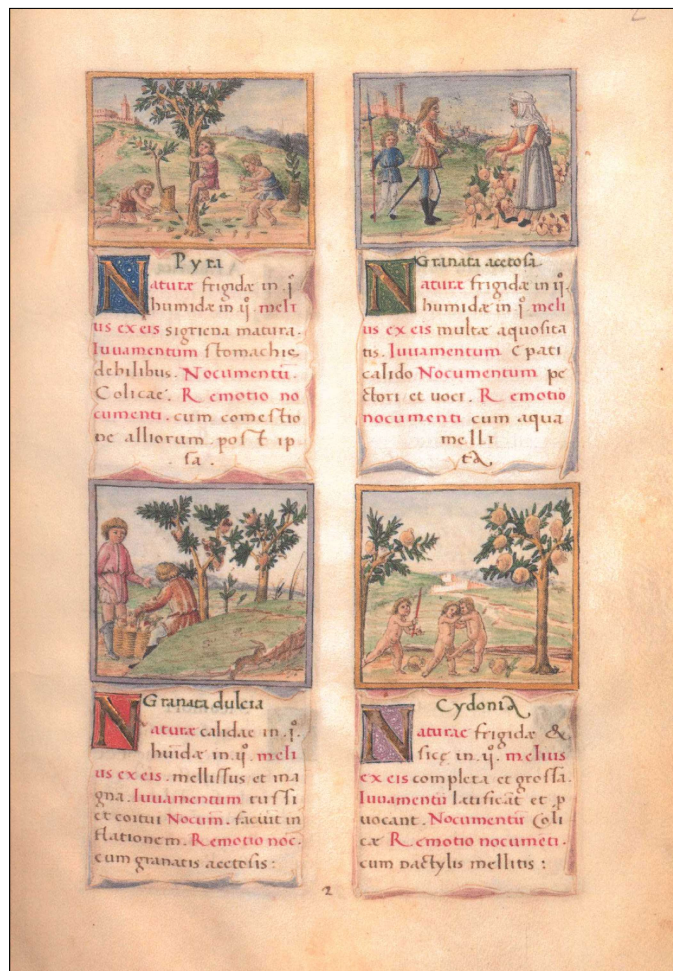 2
Pyra
Naturæ frigidæ in .i̊.
humidæ in .ıȷ̊. meli
us ex eis sigriena matura.
Iuuamentum stomachis
debilibus. Nocumentū.
Colicae. Remotio no
cumenti. cum comestio
ne alliorum post ip
sa.
Granata dulcia
Naturæ calidæ in .i̊.
huīdæ in .ıȷ̊. meli
us ex eis. mellissus et ma
gna. Iuuamentum tussi
et coitui Nocum̄. faciūt in
flationem. Remotio noc̄.
cum granatis acetosis :
Granata acetosa
Naturæ frigidæ in .ıȷ̊.
humidæ in .i̊. meli
us ex eis multæ aquosita
tis. Iuuamentum Epati
calido Nocumentum pe
ctori et uoci. Remotio
nocumenti cum aqua
melli
ta
Cydonia
Naturae frigidæ &
siccę in .ıȷ̊. melius
ex eis completa et grossa.
Iuuamentū lætificāt et ꝓ
uocant. Nocumentū Coli
cæ Remotio nocumēti.
cum dactylis mellitis :
2